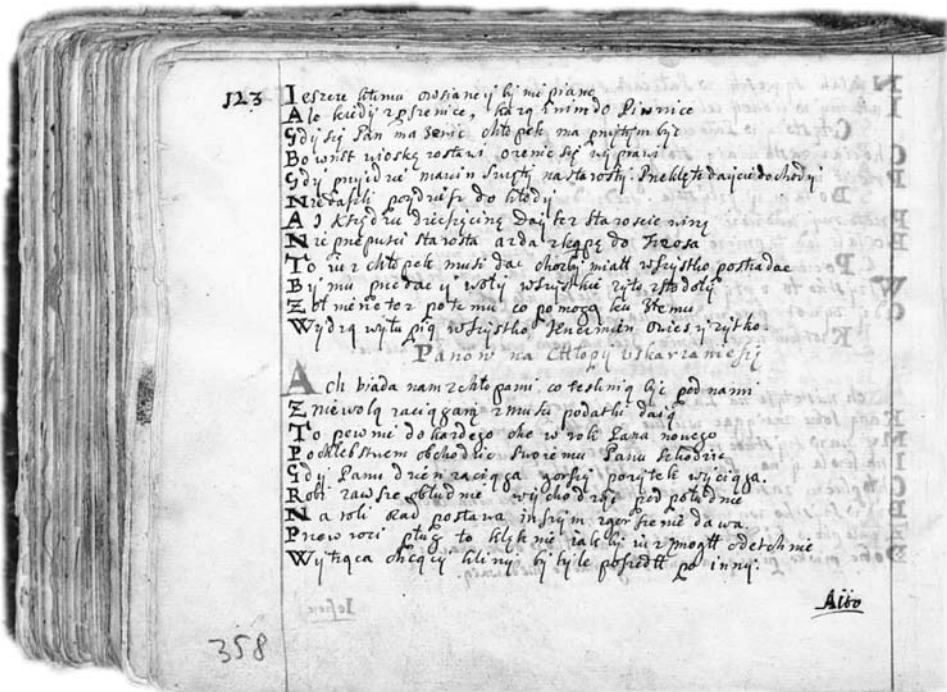 523
Ieszcze ktemu owsianey by nie piane
Ale kiedy z pszenice, karą s nim do Piwnice
Gdy się Pan ma żenic chłopek ma przytym byc
Bo wnet wioskę rostawi ozenic się wyprawi
Gdy przyidzie marcin Swięty na starosty. Przeklęte daycie dochody
Niedasili poydziesz do kłody
A I Księdzu dziesięcinę Day też staroscie winę
Nie przepusci starosta azda zkąpę do Trzosa
To iuz chłopek musi dac chocby miałł wszystko postradac
By mu przedac y woły wszystkie zyto z stodoły
Zeł mięnete potemu co pomogą ku Stemu
Wydrą wyłupią wszystko, Ięnczmien owies y zytko.
Panow na Chłopy uskarzaniesię
Ach biada nam z chłopami co tesknią byc pod nami
Zniewolą raciągaią z musu podatki daią
To pewnie do kazdego oke w rok Pana nowego
Pochlebstwem obchodzic swoiemu Panu szkodzic
Gdy Panu dzień zaciąga gorszy pozytek wyciąga.
Robi zawsze obłudnie wychodząc pod południe
Na roli Rad postawa inszym zgorszenie dawa
Przewroci pług to klęknie iakby iuz mogłł odetchnie
Wytrąca chcący kliny by tyle poszedłł po inny.
Aibo
358